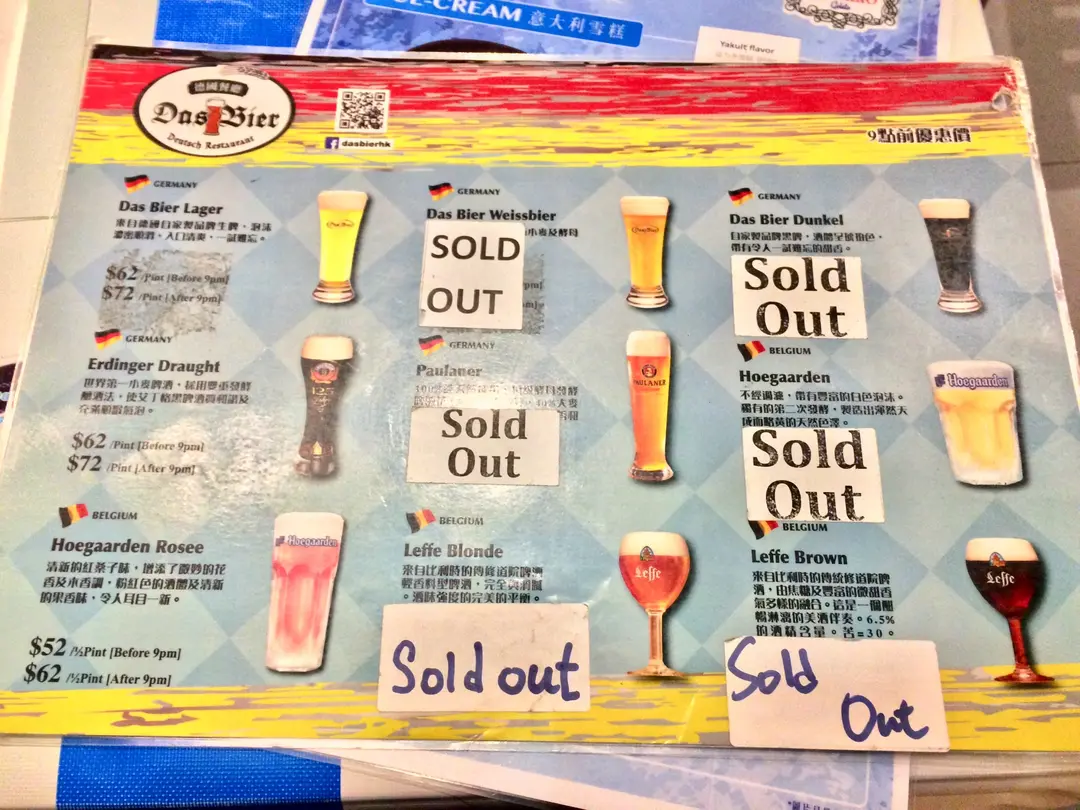 ICE-CREAM 意大利雪糕
Yakult flavor
德國餐廳
Das Bier
Deutsch Restaurant
dasbierhk
9點前優惠價
GERMANY
Das Bier Lager
來自德國自家製品牌生啤，泡沫
濃密順滑，入口清爽，一試難忘。
$62 /Pint [Before 9pm]
$72 /Pint [After 9pm]
GERMANY
Das Bier Weissbier
小麥及酵母
SOLD
OUT
GERMANY
Das Bier Dunkel
自家製品牌黑啤，酒體呈琥珀色，
帶有令人一試難忘的甜香。
Sold
Out
GERMANY
Erdinger Draught
世界第一小麥啤酒，採用雙重發酵
釀酒法，使艾丁格黑啤酒質和諧及
充滿細緻氣泡。
$62 /Pint [Before 9pm]
$72 /Pint [After 9pm]
GERMANY
Paulaner
Sold
Out
PAULANER
BELGIUM
Hoegaarden
不經過濾，帶有豐富的白色泡沫。
稀有的第二次發酵，製造出渾然天
成而略黃的天然色澤。
Sold
Out
Hoegaarden
BELGIUM
Hoegaarden Rosee
清新的紅桑子味，增添了微妙的花
香及木香調，粉紅色的酒體及清新
的果香味，令人耳目一新。
$52 /½Pint [Before 9pm]
$62 /½Pint [After 9pm]
Hoegaarden
BELGIUM
Leffe Blonde
來自比利時的傳修道院啤酒
輕香料型啤酒，完全與
。酒味強度的完美的平衡。
Sold out
Leffe
BELGIUM
Leffe Brown
來自比利時的傳統修道院啤
酒，由焦糖及豐富的微甜香
氣多樣的融合。這是一個酣
暢淋漓的美酒伴奏。6.5%
的酒精含量。苦=30。
Sold
Out
Leffe